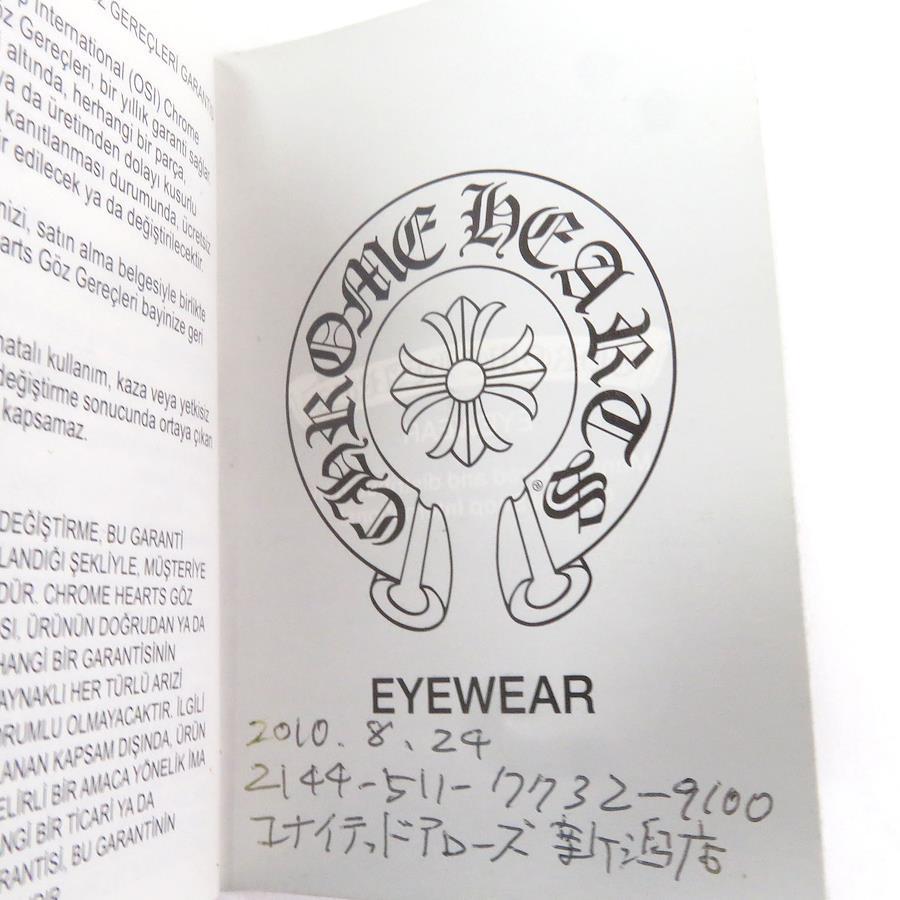 GÖZ GEREÇLERİ GARANTİSİ
International (OSI) Chrome
Göz Gereçleri, bir yıllık garanti sağlar
altında, herhangi bir parça,
ya da üretimden dolayı kusurlu
kanıtlanması durumunda, ücretsiz
edilecek ya da değiştirilecektir.
satın alma belgesiyle birlikte
Göz Gereçleri bayinize geri
hatalı kullanım, kaza veya yetkisiz
değiştirme sonucunda ortaya çıkan
kapsamaz.
DEĞİŞTİRME, BU GARANTİ
ŞEKLİYLE, MÜŞTERİYE
CHROME HEARTS GÖZ
ÜRÜNÜN DOĞRUDAN YA DA
BİR GARANTİSİNİN
HER TÜRLÜ ARIZİ
OLMAYACAKTIR. İLGİLİ
KAPSAM DIŞINDA, ÜRÜN
BİR AMACA YÖNELİK İMA
BİR TİCARİ YA DA
BU GARANTİNİN
CHROME HEARTS
®
EYEWEAR
2010.8.24
2144-511-7732-9100
ユナイテッドアローズ 新潟店